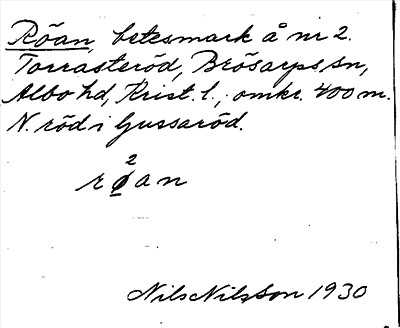 Röan, betesmark å nr 2.
Torrasteröd, Brösarps sn,
Albo hd, Krist. l.; omkr. 400 m.
N. röd i Gussaröd.
2
røan
Nils Nilsson 1930